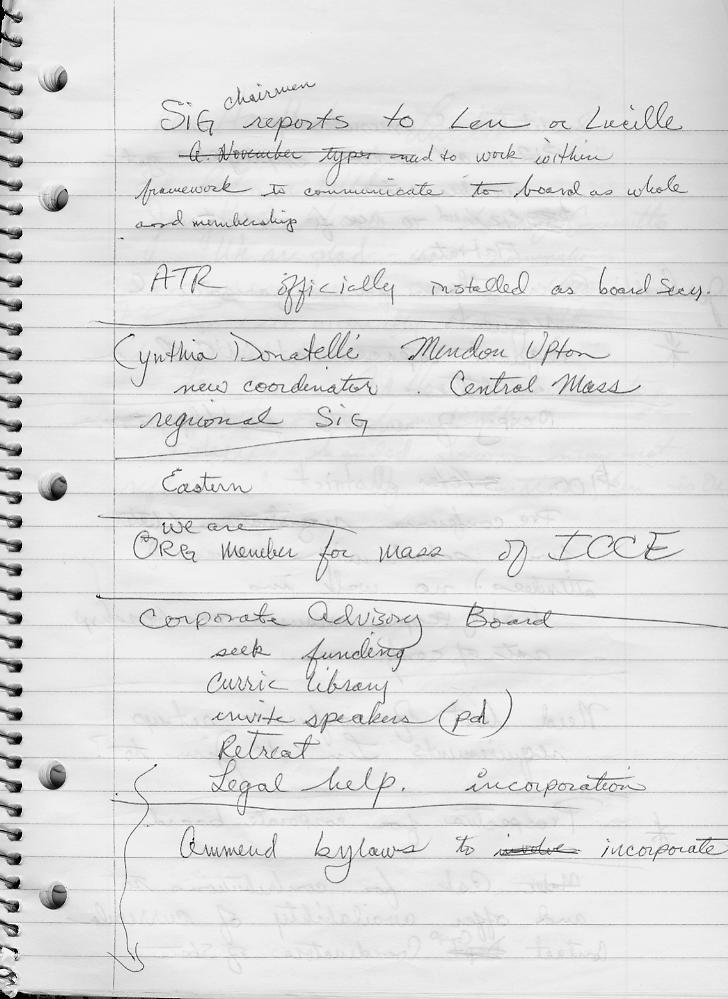 chairmen
SiG reports to Len or Lucille
a. November types need to work within
framework to communicate to board as whole
and membership
ATR officially installed as board secy.
Cynthia Donatelli Mendon Upton
new coordinator . Central Mass
regional SiG
Eastern
we are
ORG member for mass of ICCE
Corporate Advisory Board
seek funding
Curric library
invite speakers (pd)
Retreat
Legal help. incorporation
Ammend bylaws to involve incorporate